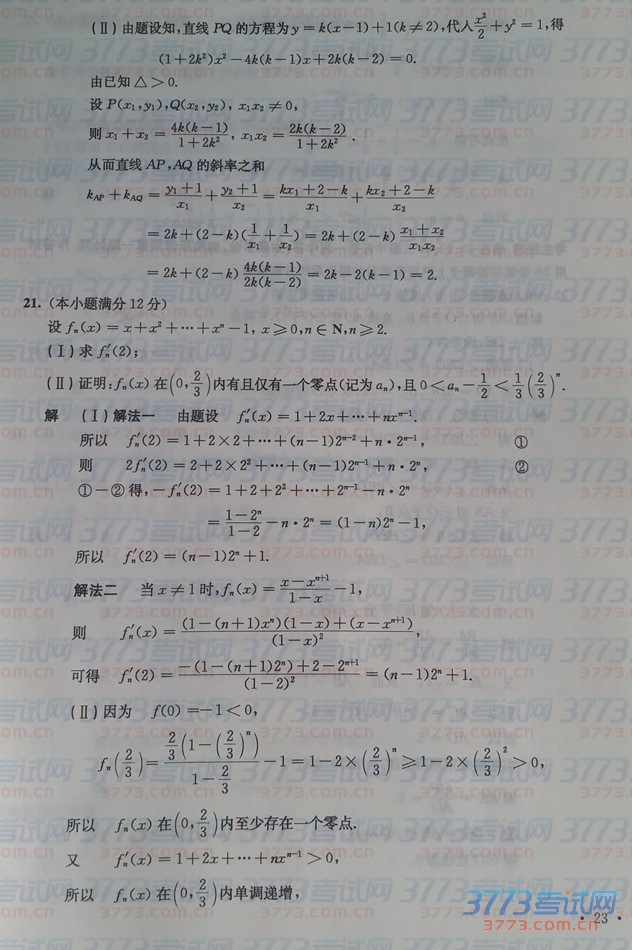 (Ⅱ) 由题设知,直线 PQ 的方程为 y = k(x-1)+1(k≠2),代人 x²/2 + y² = 1,得
(1+2k²)x² - 4k(k-1)x + 2k(k-2) = 0.
由已知 △ > 0.
设 P(x₁,y₁),Q(x₂,y₂), x₁x₂ ≠ 0,
则 x₁+x₂ = 4k(k-1)/(1+2k²), x₁x₂ = 2k(k-2)/(1+2k²) .
从而直线 AP,AQ 的斜率之和
k_AP + k_AQ = (y₁+1)/x₁ + (y₂+1)/x₂ = (kx₁+2-k)/x₁ + (kx₂+2-k)/x₂
= 2k+(2-k)(1/x₁ + 1/x₂) = 2k+(2-k) (x₁+x₂)/(x₁x₂)
= 2k+(2-k) 4k(k-1)/(2k(k-2)) = 2k-2(k-1) = 2.
21. (本小题满分 12 分)
设 fₙ(x) = x+x²+⋯+xⁿ-1, x≥0,n∈N,n≥2.
(Ⅰ) 求 fₙ′(2);
(Ⅱ) 证明:fₙ(x) 在(0, 2/3)内有且仅有一个零点(记为 aₙ),且 0 < aₙ - 1/2 < 1/3 (2/3)ⁿ.
解 (Ⅰ) 解法一 由题设 fₙ′(x) = 1+2x+⋯+nxⁿ⁻¹.
所以 fₙ′(2) = 1+2×2+⋯+(n-1)2ⁿ⁻²+n·2ⁿ⁻¹, ①
则 2fₙ′(2) = 2+2×2²+⋯+(n-1)2ⁿ⁻¹+n·2ⁿ, ②
①-②得,-fₙ′(2) = 1+2+2²+⋯+2ⁿ⁻¹-n·2ⁿ
= (1-2ⁿ)/(1-2) - n·2ⁿ = (1-n)2ⁿ-1,
所以 fₙ′(2) = (n-1)2ⁿ+1.
解法二 当 x≠1 时,fₙ(x) = (x-xⁿ⁺¹)/(1-x) - 1,
则 fₙ′(x) = ((1-(n+1)xⁿ)(1-x)+(x-xⁿ⁺¹))/(1-x)²,
可得 fₙ′(2) = (-(1-(n+1)2ⁿ)+2-2ⁿ⁺¹)/(1-2)² = (n-1)2ⁿ+1.
(Ⅱ) 因为 f(0) = -1 < 0,
fₙ(2/3) = (2/3(1-(2/3)ⁿ))/(1-2/3) - 1 = 1-2×(2/3)ⁿ ≥ 1-2×(2/3)² > 0,
所以 fₙ(x) 在(0, 2/3)内至少存在一个零点.
又 fₙ′(x) = 1+2x+⋯+nxⁿ⁻¹ > 0,
所以 fₙ(x) 在(0, 2/3)内单调递增,
3773考试网
3773.com.cn
· 23 ·